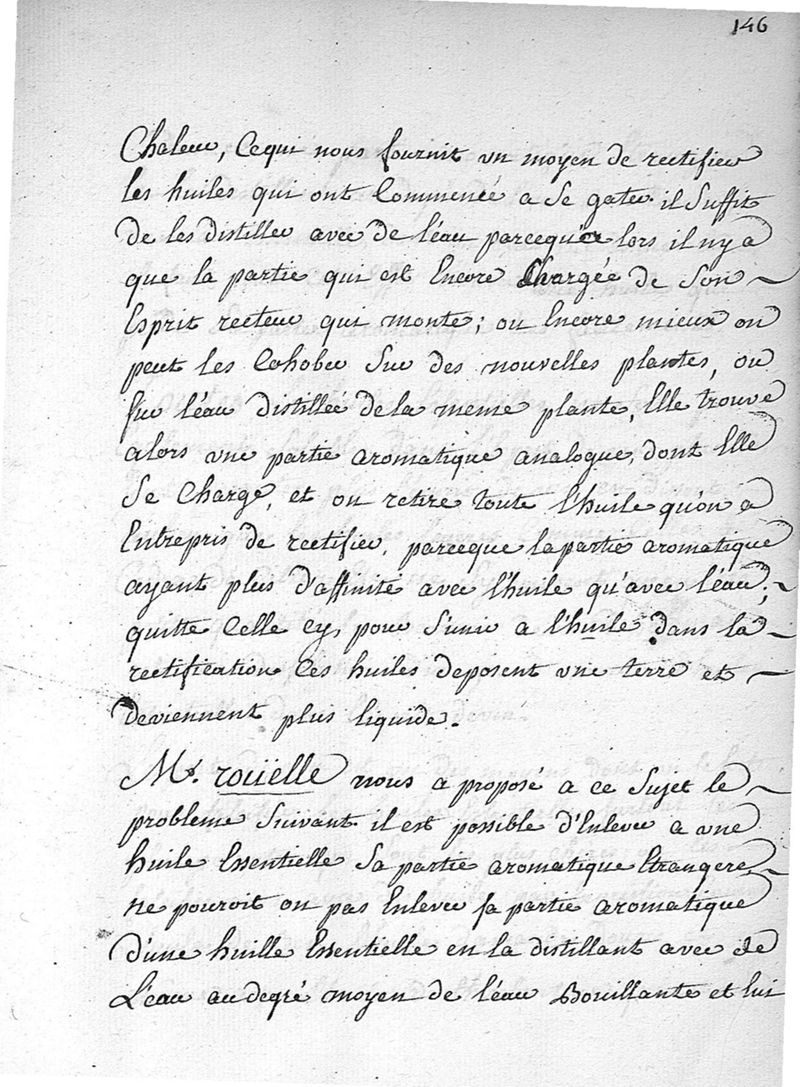 146
Chaleur, Cequi nous fournit un moyen de rectifier
les huiles qui ont Commencé a Se gater. il Suffit
de les distiller avec de l'éau parcequ'alors il ny a
que la partie qui est Encore Chargée de Son
Esprit recteur qui monte; ou Encore mieux on
peut les Cohober Sur des nouvelles plantes, ou
sur l'éau distilleé de la meme plante, Elle trouve
alors une partie aromatique analogue, dont Elle
Se Charge, et on retire toute l'huile qu'on a
Entrepris de rectifier, parceque la partie aromatique
ayant plus d'affinité avec l'huile qu'avec l'éau;
quitte Celle Cy, pour S'unir a l'huile dans la
rectification Ces huiles deposent une terre et
deviennent plus liquide.
Mr. roüelle nous a proposé a ce Sujet le
probleme Suivant. il est possible d'Enlever a une
huile Essentielle Sa partie aromatique Etrangere,
ne pouroit on pas Enlever sa partie aromatique
d'une huille Essentielle en la distillant avec de
L'éau au degré moyen de l'éau Bouillante et lui